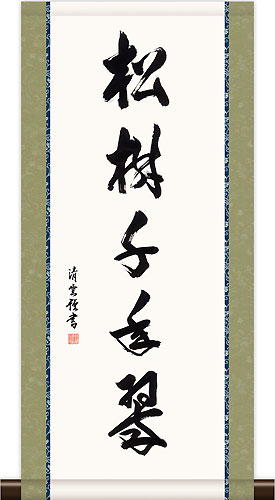 松樹千年翠
清雲譚書